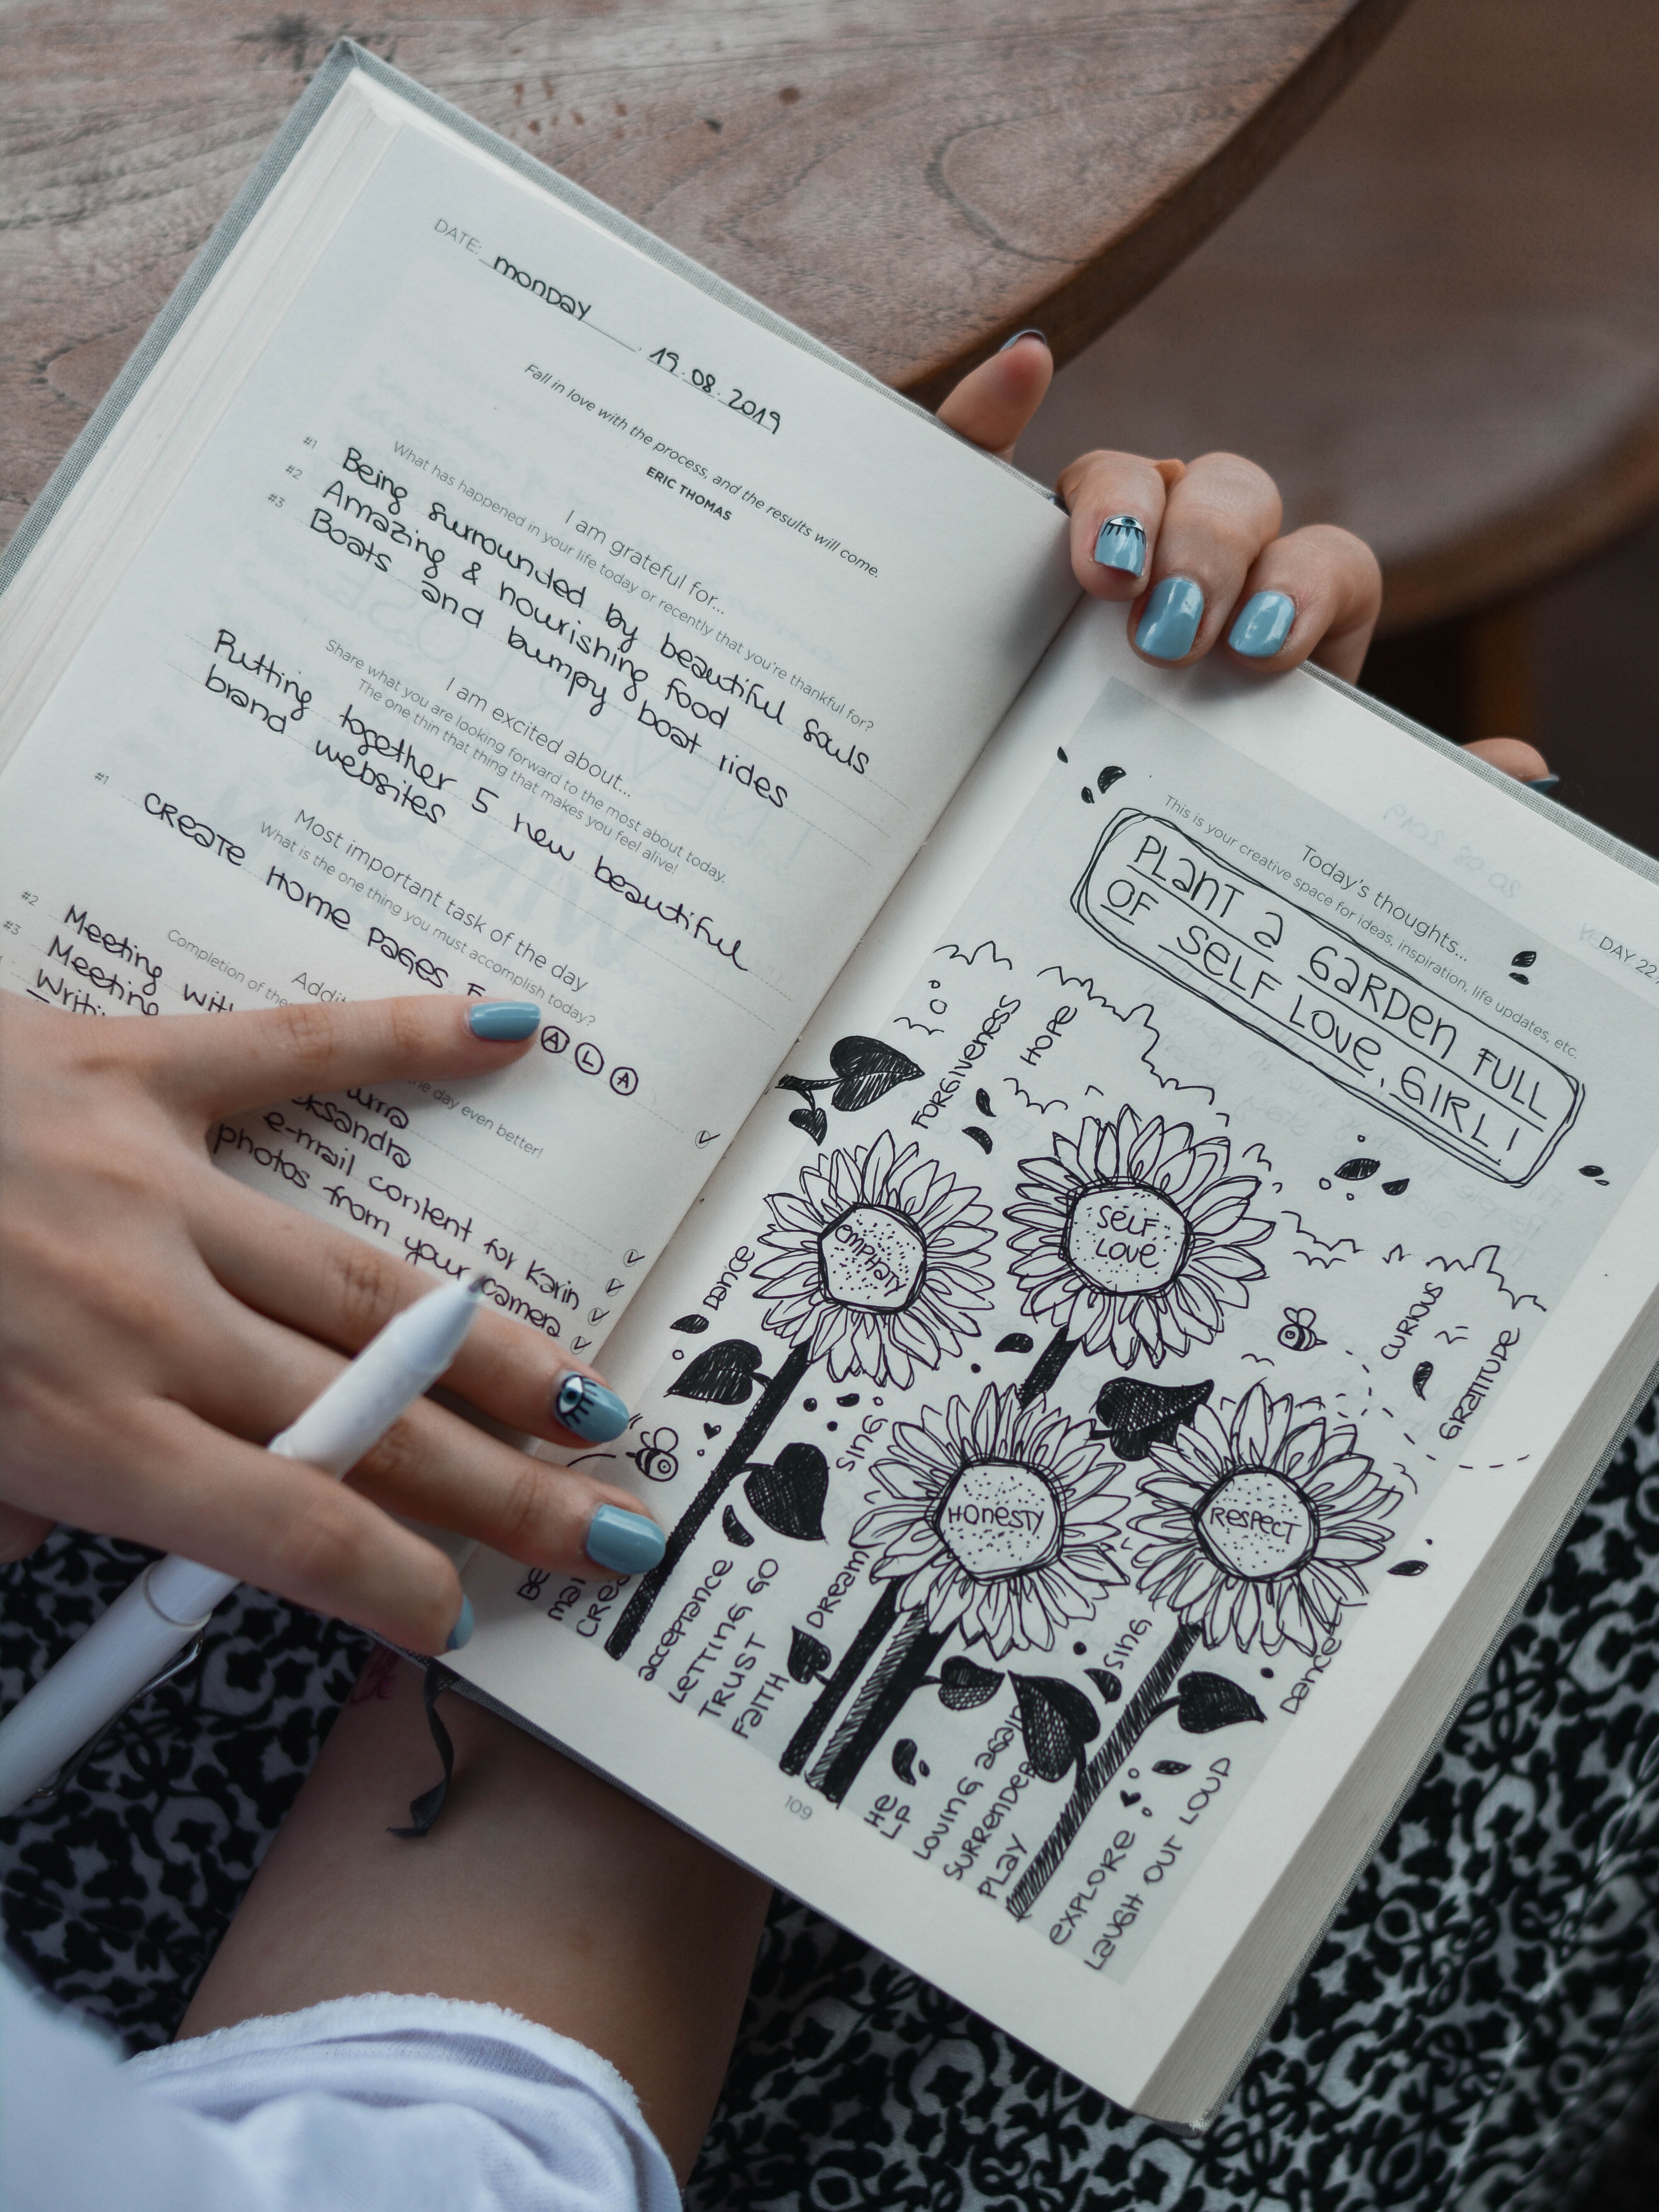 DATE: monday 19.08.2019
Fall in love with the process, and the results will come.
ERIC THOMAS
I am grateful for...
What has happened in your life today or recently that you're thankful for?
#1 Being surrounded by beautiful souls
#2 Amazing & nourishing food
#3 Boats and bumpy boat rides
I am excited about...
Share what you are looking forward to the most about today.
The one thin that thing that makes you feel alive!
Putting together 5 new beautiful
brand websites
Most important task of the day
What is the one thing you must accomplish today?
#1 CREATE HOME PAGES A L A
Completion of the day even better!
#2 Meeting
#3 Meeting
e-mail content for Karin
photos from your camera
DAY 22
Today's thoughts...
This is your creative space for ideas, inspiration, life updates, etc.
PLANT a GARDEN FULL
OF SELF LOVE, GIRL!
FORGIVENESS
HOPE
EMPHATY
SELF
LOVE
DANCE
CURIOUS
GRATITUDE
SING
HONESTY
RESPECT
acceptance
LETTING GO
TRUST
FAITH
DREAM
SING
DANCE
HE
LP
LOVING again
SURRENDER
PLAY
EXPLORE
LAUGH OUT LOUD
109